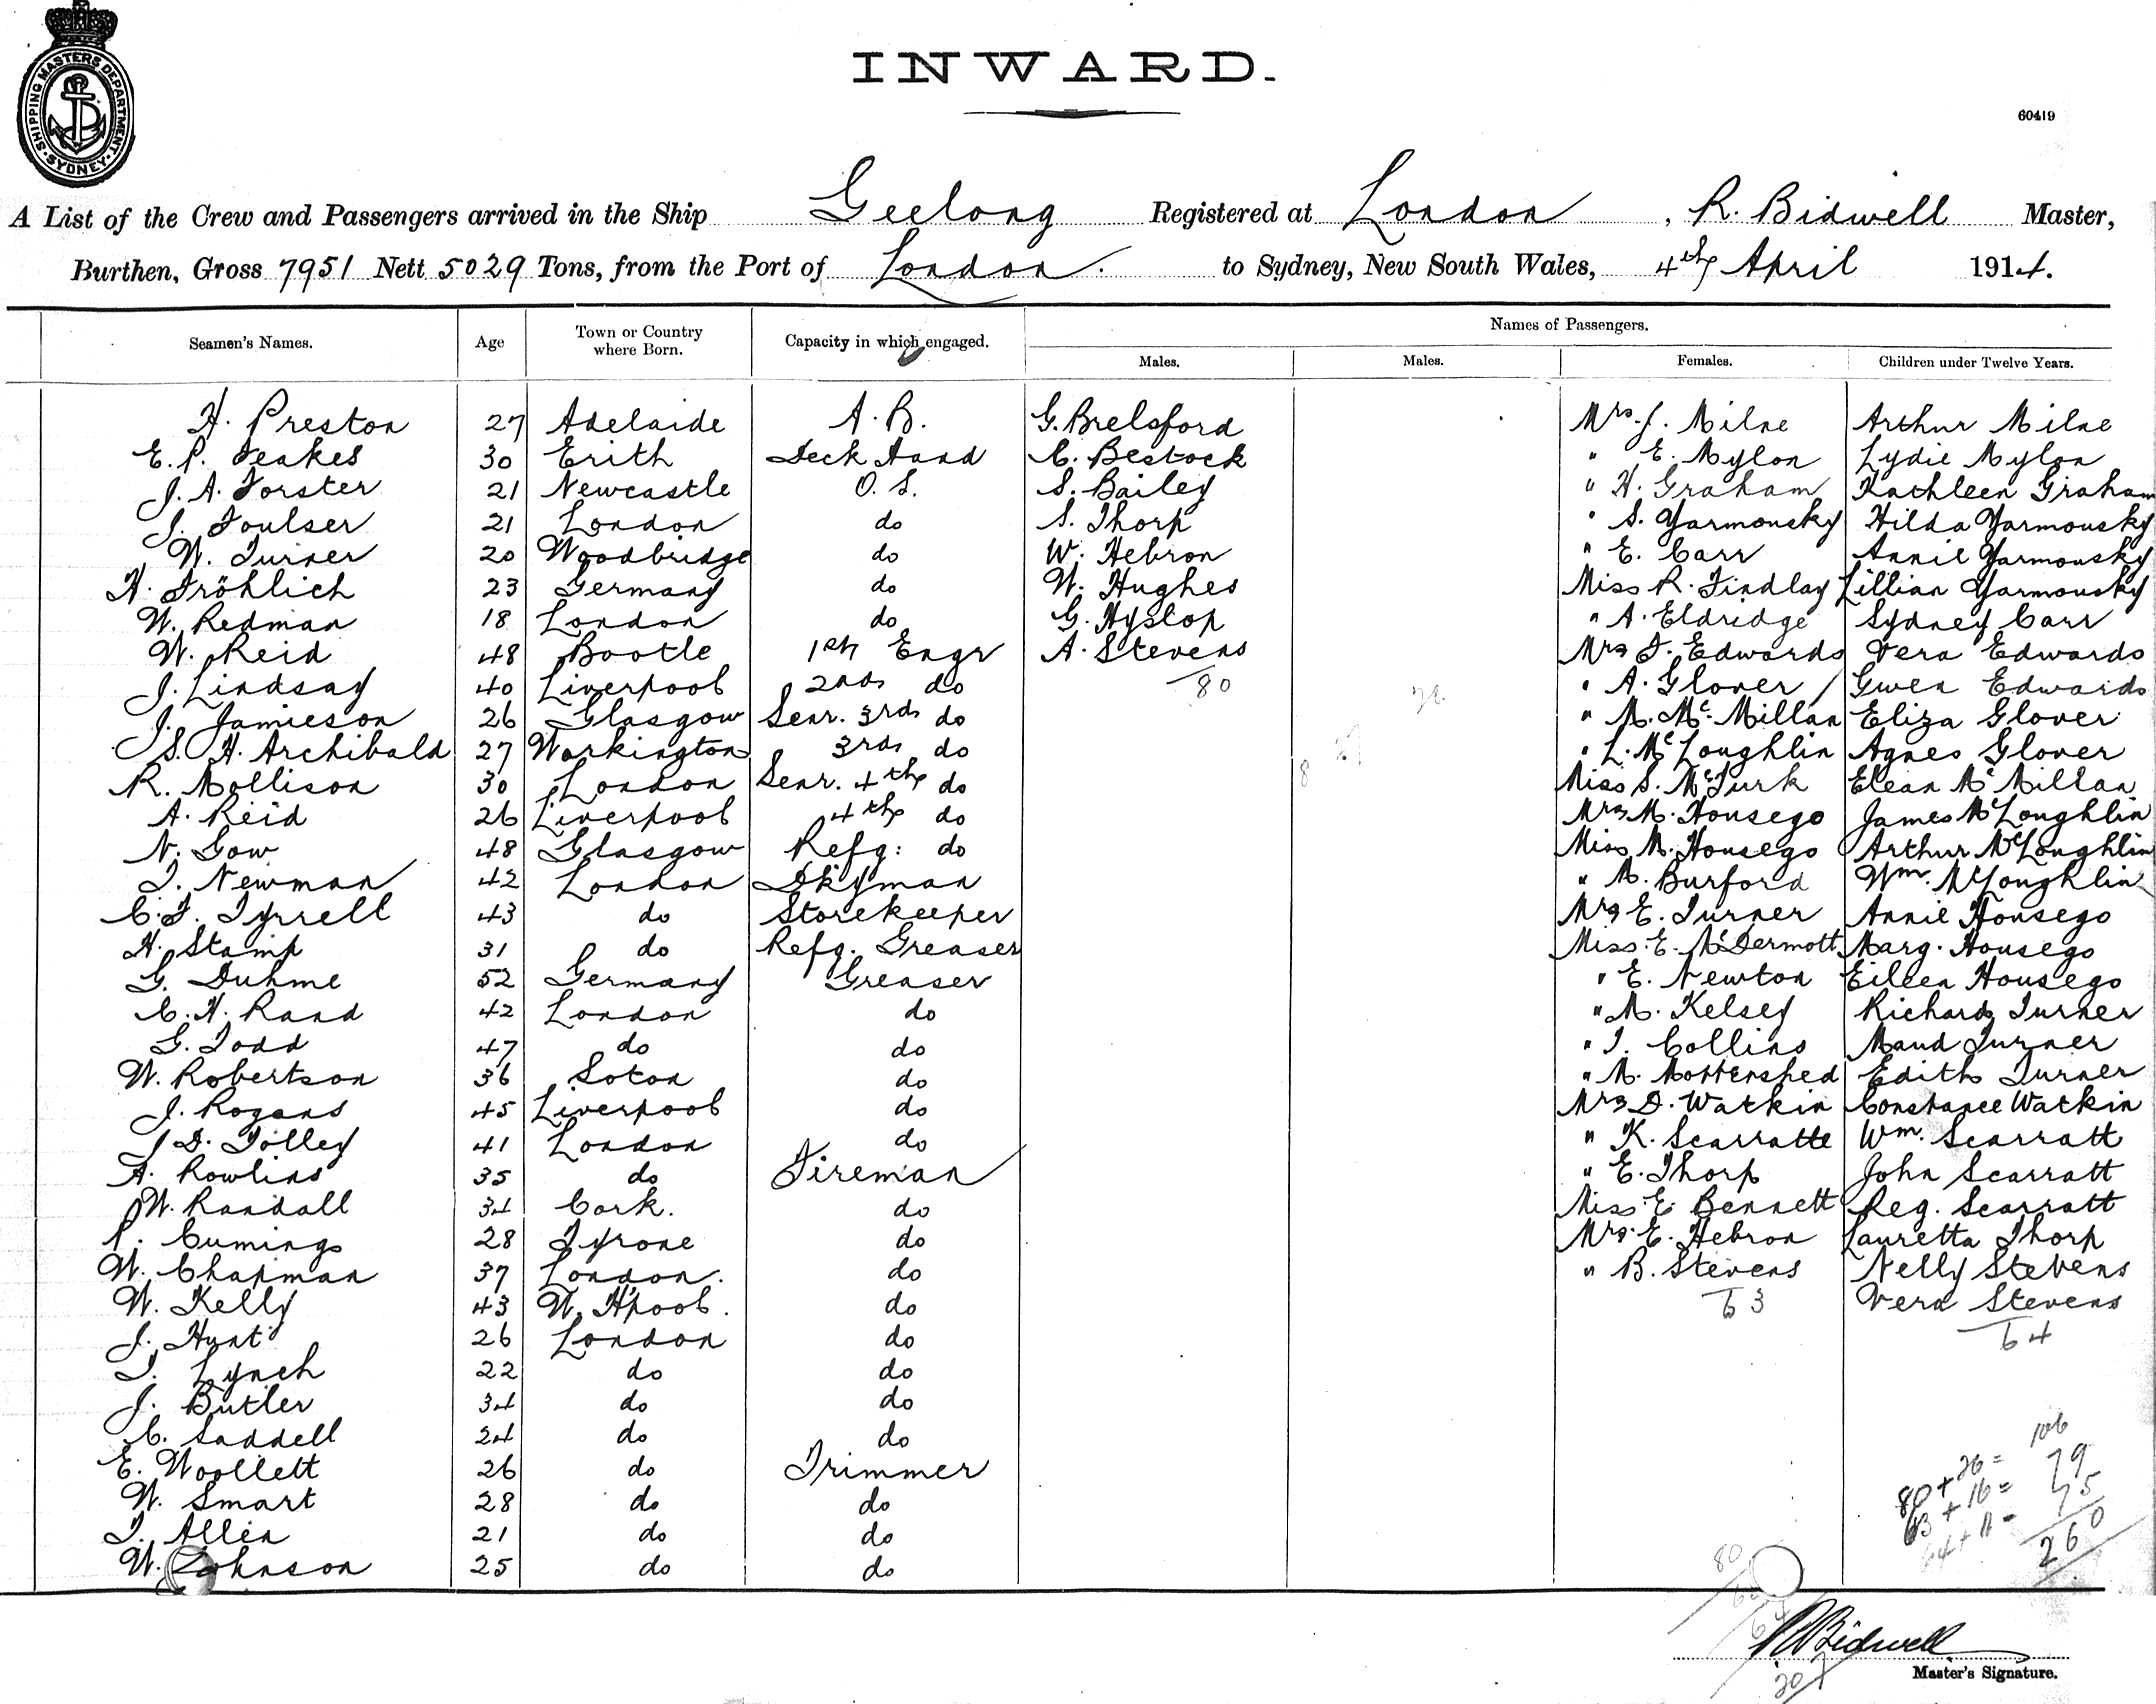 SHIPPING MASTERS DEPARTMENT · SYDNEY ·
INWARD.
60419
A List of the Crew and Passengers arrived in the Ship Geelong Registered at London, R. Bidwell Master,
Burthen, Gross 7951 Nett 5029 Tons, from the Port of London. to Sydney, New South Wales, 4th April 1914.
Names of Passengers.
Seamen's Names. Age Town or Country where Born. Capacity in which engaged. Males. Males. Females. Children under Twelve Years.
H. Preston 27 Adelaide A.B. G. Brelsford Mrs. J. Milne Arthur Milne
E. P. Feakes 30 Erith Deck Hand C. Bestock " E. Mylon Lydie Mylon
J. A. Forster 21 Newcastle O.S. S. Bailey " H. Graham Kathleen Graham
J. Foulser 21 London do S. Thorp " S. Yarmonsky Hilda Yarmousky
W. Turner 20 Woodbridge do W. Hebron " E. Carr Annie Yarmousky
H. Fröhlich 23 Germany do W. Hughes Miss R. Findlay Lillian Yarmousky
W. Redman 18 London do G. Hyslop " A. Eldridge Sydney Carr
W. Reid 48 Bootle 1st Engr A. Stevens Mrs F. Edwards Vera Edwards
J. Lindsay 40 Liverpool 2nd do 80 " A. Glover Gwen Edwards
J. Jamieson 26 Glasgow Senr. 3rd do " M. McMillan Eliza Glover
S. H. Archibald 27 Workington 3rd do " L. McLoughlin Agnes Glover
R. Mollison 30 London Senr. 4th do 8 Miss S. McTurk Elean McMillan
A. Reid 26 Liverpool 4th do Mrs M. Housego James McLoughlin
N. Gow 48 Glasgow Refg: do Miss M. Housego Arthur McLoughlin
T. Newman 42 London Dkyman " M. Burford Wm. McLoughlin
C. F. Tyrrell 43 do Storekeeper Mrs E. Turner Annie Housego
H. Stamp 31 do Refg. Greaser Miss E. McDermott Marg. Housego
G. Duhme 52 Germany Greaser " E. Newton Eileen Housego
C. H. Rand 42 London do " M. Kelsey Richard Turner
G. Todd 47 do do " I. Collins Maud Turner
W. Robertson 36 Soton do " M. Mottershed Edith Turner
J. Rogans 45 Liverpool do Mrs D. Watkin Constance Watkin
J D. Tolley 41 London do " K. Scarratte Wm. Scarratt
A. Rowlins 35 do Fireman " E. Thorp John Scarratt
W. Randall 34 Cork. do Miss E. Bennett Reg. Scarratt
P. Cumings 28 Tyrone do Mrs. E. Hebron Lauretta Thorp
W. Chapman 37 London. do " B. Stevens Nelly Stevens
W. Kelly 43 W. H'pool. do 63 Vera Stevens
J. Hunt 26 London do 64
T. Lynch 22 do do
J. Butler 34 do do
C. Saddell 24 do do
E. Woollett 26 do Trimmer
W. Smart 28 do do
T. Allen 21 do do
W. Johnson 25 do do
80 + 26 = 106
63 + 16 = 79
64 + 11 = 75
260
80
64
207
R Bidwell
Master's Signature.